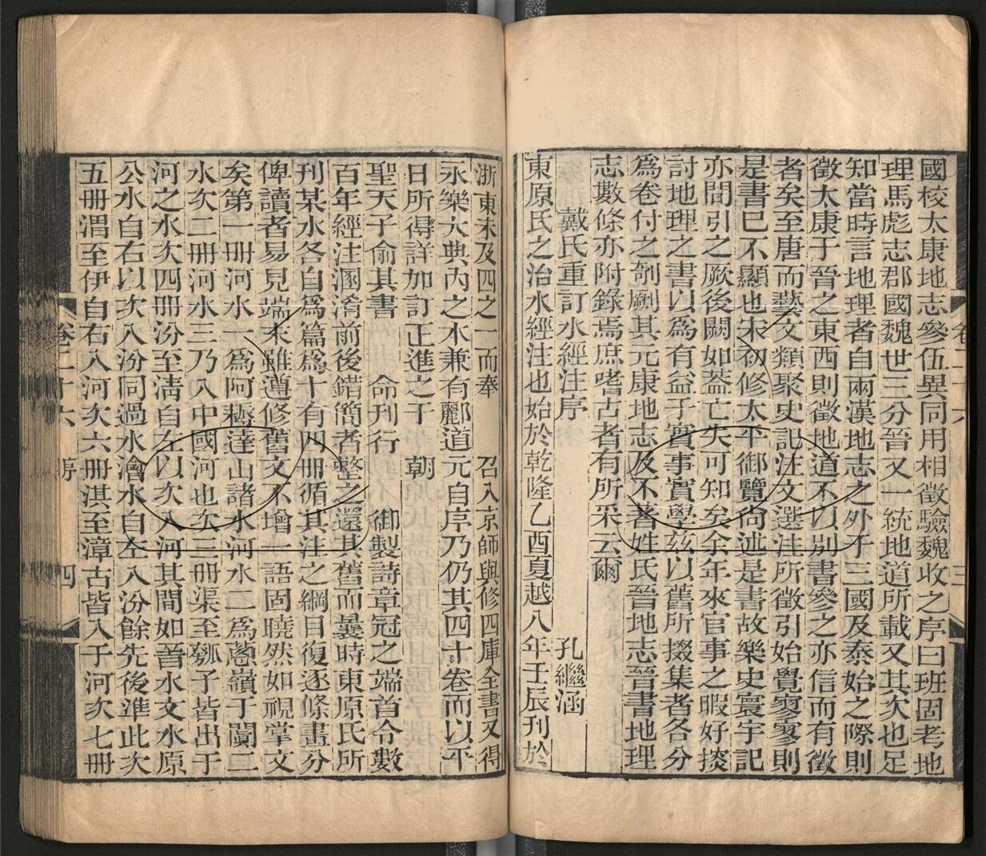 國校太康地志參伍異同用相徵驗魏收之序曰班固考地
理馬彪志郡國魏世三分晉又一統地道所載又其次也足
知當時言地理者自兩漢地志之外于三國及泰始之際則
徵太康于晉之東西則徵地道不以別書參之亦信而有徵
者矣至唐而藝文類聚史記注文選注所徵引始覺寥寥則
是書已不顯也宋初修太平御覽尚述是書故樂史寰宇記
亦間引之厥後闕如蓋亡失可知矣余年來官事之暇好掞
討地理之書以為有益于實事實學茲以舊所掇集者各分
為卷付之剞劂其元康地志及不著姓氏晉地志晉書地理
志數條亦附錄焉庶嗜古者有所采云爾
戴氏重訂水經注序 孔繼涵
東原氏之治水經注也始於乾隆乙酉夏越八年壬辰刊於
浙東未及四之一而奉 召入京師與修四庫全書又得
永樂大典內之本兼有酈道元自序乃仍其四十卷而以平
日所得詳加訂正進之于 朝 御製詩章冠之端首令數
聖天子俞其書 命刊行
百年經注溷淆前後錯簡者整之還其舊而曩時東原氏所
刊某水各自為篇為十有四冊循其注之綱目復逐條畫分
俾讀者易見端末雖遵修舊文不增一語固曉然如視掌文
矣第一冊河水一為阿耨達山諸水河水二為蔥嶺于闐二
水次二冊河水三乃入中國河也次三冊渠至瓠子皆出于
河之水次四冊汾至清自左以次入河其間如晉水文水原
公水自右以次入汾同過水澮水自左入汾餘先後準此次
五冊渭至伊自右入河次六冊淇至漳古皆入于河次七冊
卷二十六 三
卷二十六 序 四